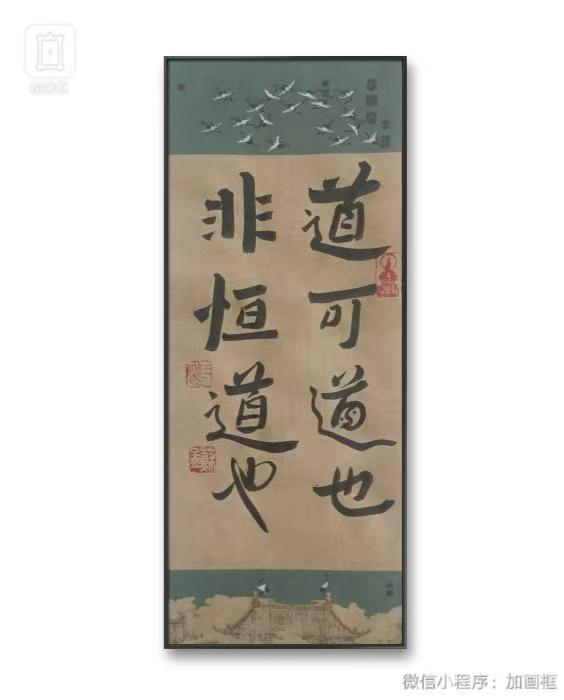 加画框
道可道也
非恒道也
微信小程序：加画框